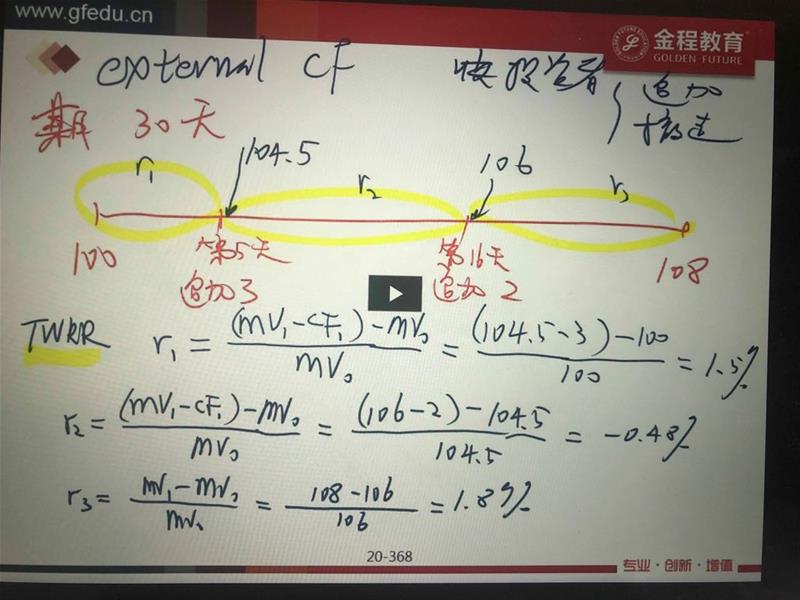 www.gfedu.cn
金程教育
GOLDEN FUTURE
external CF
投资者
追加
期 30天
104.5
106
r₁
r₂
r₃
100
第5天
追加 3
第16天
追加 2
108
TWRR
r₁ = (MV₁-CF₁)-MV₀ / MV₀ = (104.5-3)-100 / 100 = 1.5%
r₂ = (MV₁-CF₁)-MV₀ / MV₀ = (106-2)-104.5 / 104.5 = -0.48%
r₃ = MV₁-MV₀ / MV₀ = 108-106 / 106 = 1.89%
20-368
专业·创新·增值